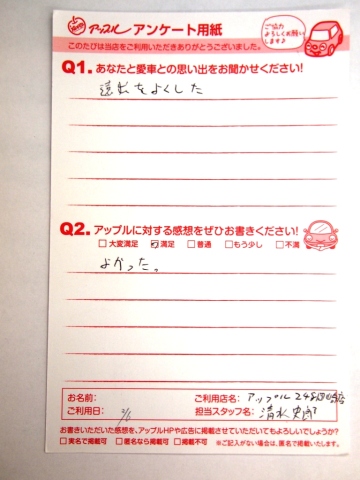 アップル アンケート用紙
ご協力
よろしくお願い
します♪
このたびは当店をご利用いただきありがとうございました。
Q1. あなたと愛車との思い出をお聞かせください!
遠出をよくした
Q2. アップルに対する感想をぜひお書きください!
□大変満足 ☑満足 □普通 □もう少し □不満
よかった。
お名前: ご利用店名: アップル248岡崎店
ご利用日: 2/6 担当スタッフ名: 清水 史郎
お書きいただいた感想を、アップルHPや広告に掲載させていただいてもよろしいでしょうか?
□実名で掲載可 □匿名なら掲載可 □掲載不可 ※ご記入がない場合は、匿名で掲載いたします。